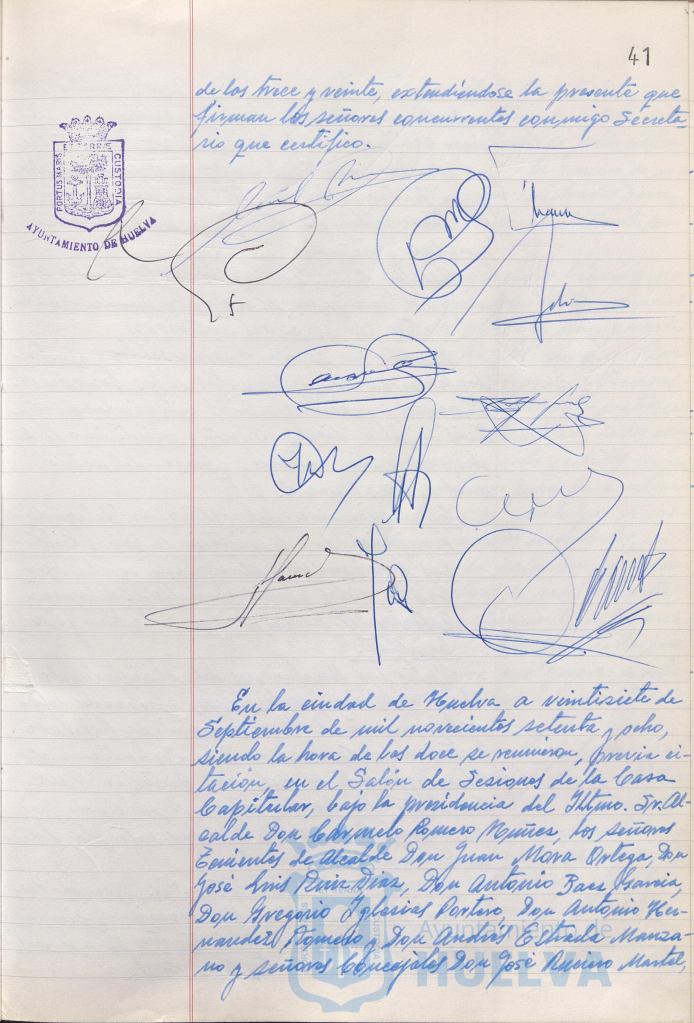 41
de los trece y veinte, extendiéndose la presente que
firman los señores concurrentes conmigo Secreta-
rio que certifico.
PORTUS MARIS ET TERRE CUSTODIA
AYUNTAMIENTO DE HUELVA
En la ciudad de Huelva, a veintisiete de
Septiembre de mil novecientos setenta y ocho,
siendo la hora de las doce se reunieron, previa ci-
tación, en el Salón de Sesiones de la Casa
Capitular, bajo la presidencia del Iltmo. Sr. Al-
calde Don Carmelo Romero Núñez, los señores
Tenientes de Alcalde Don Juan Mora Ortega, Don
José Luis Ruiz Díaz, Don Antonio Baez Garcia,
Don Gregorio Iglesias Portero, Don Antonio Her-
nandez Romero y Don Andrés Estrada Manza-
no y señores Concejales Don José Martel,
Ayuntamiento de
HUELVA